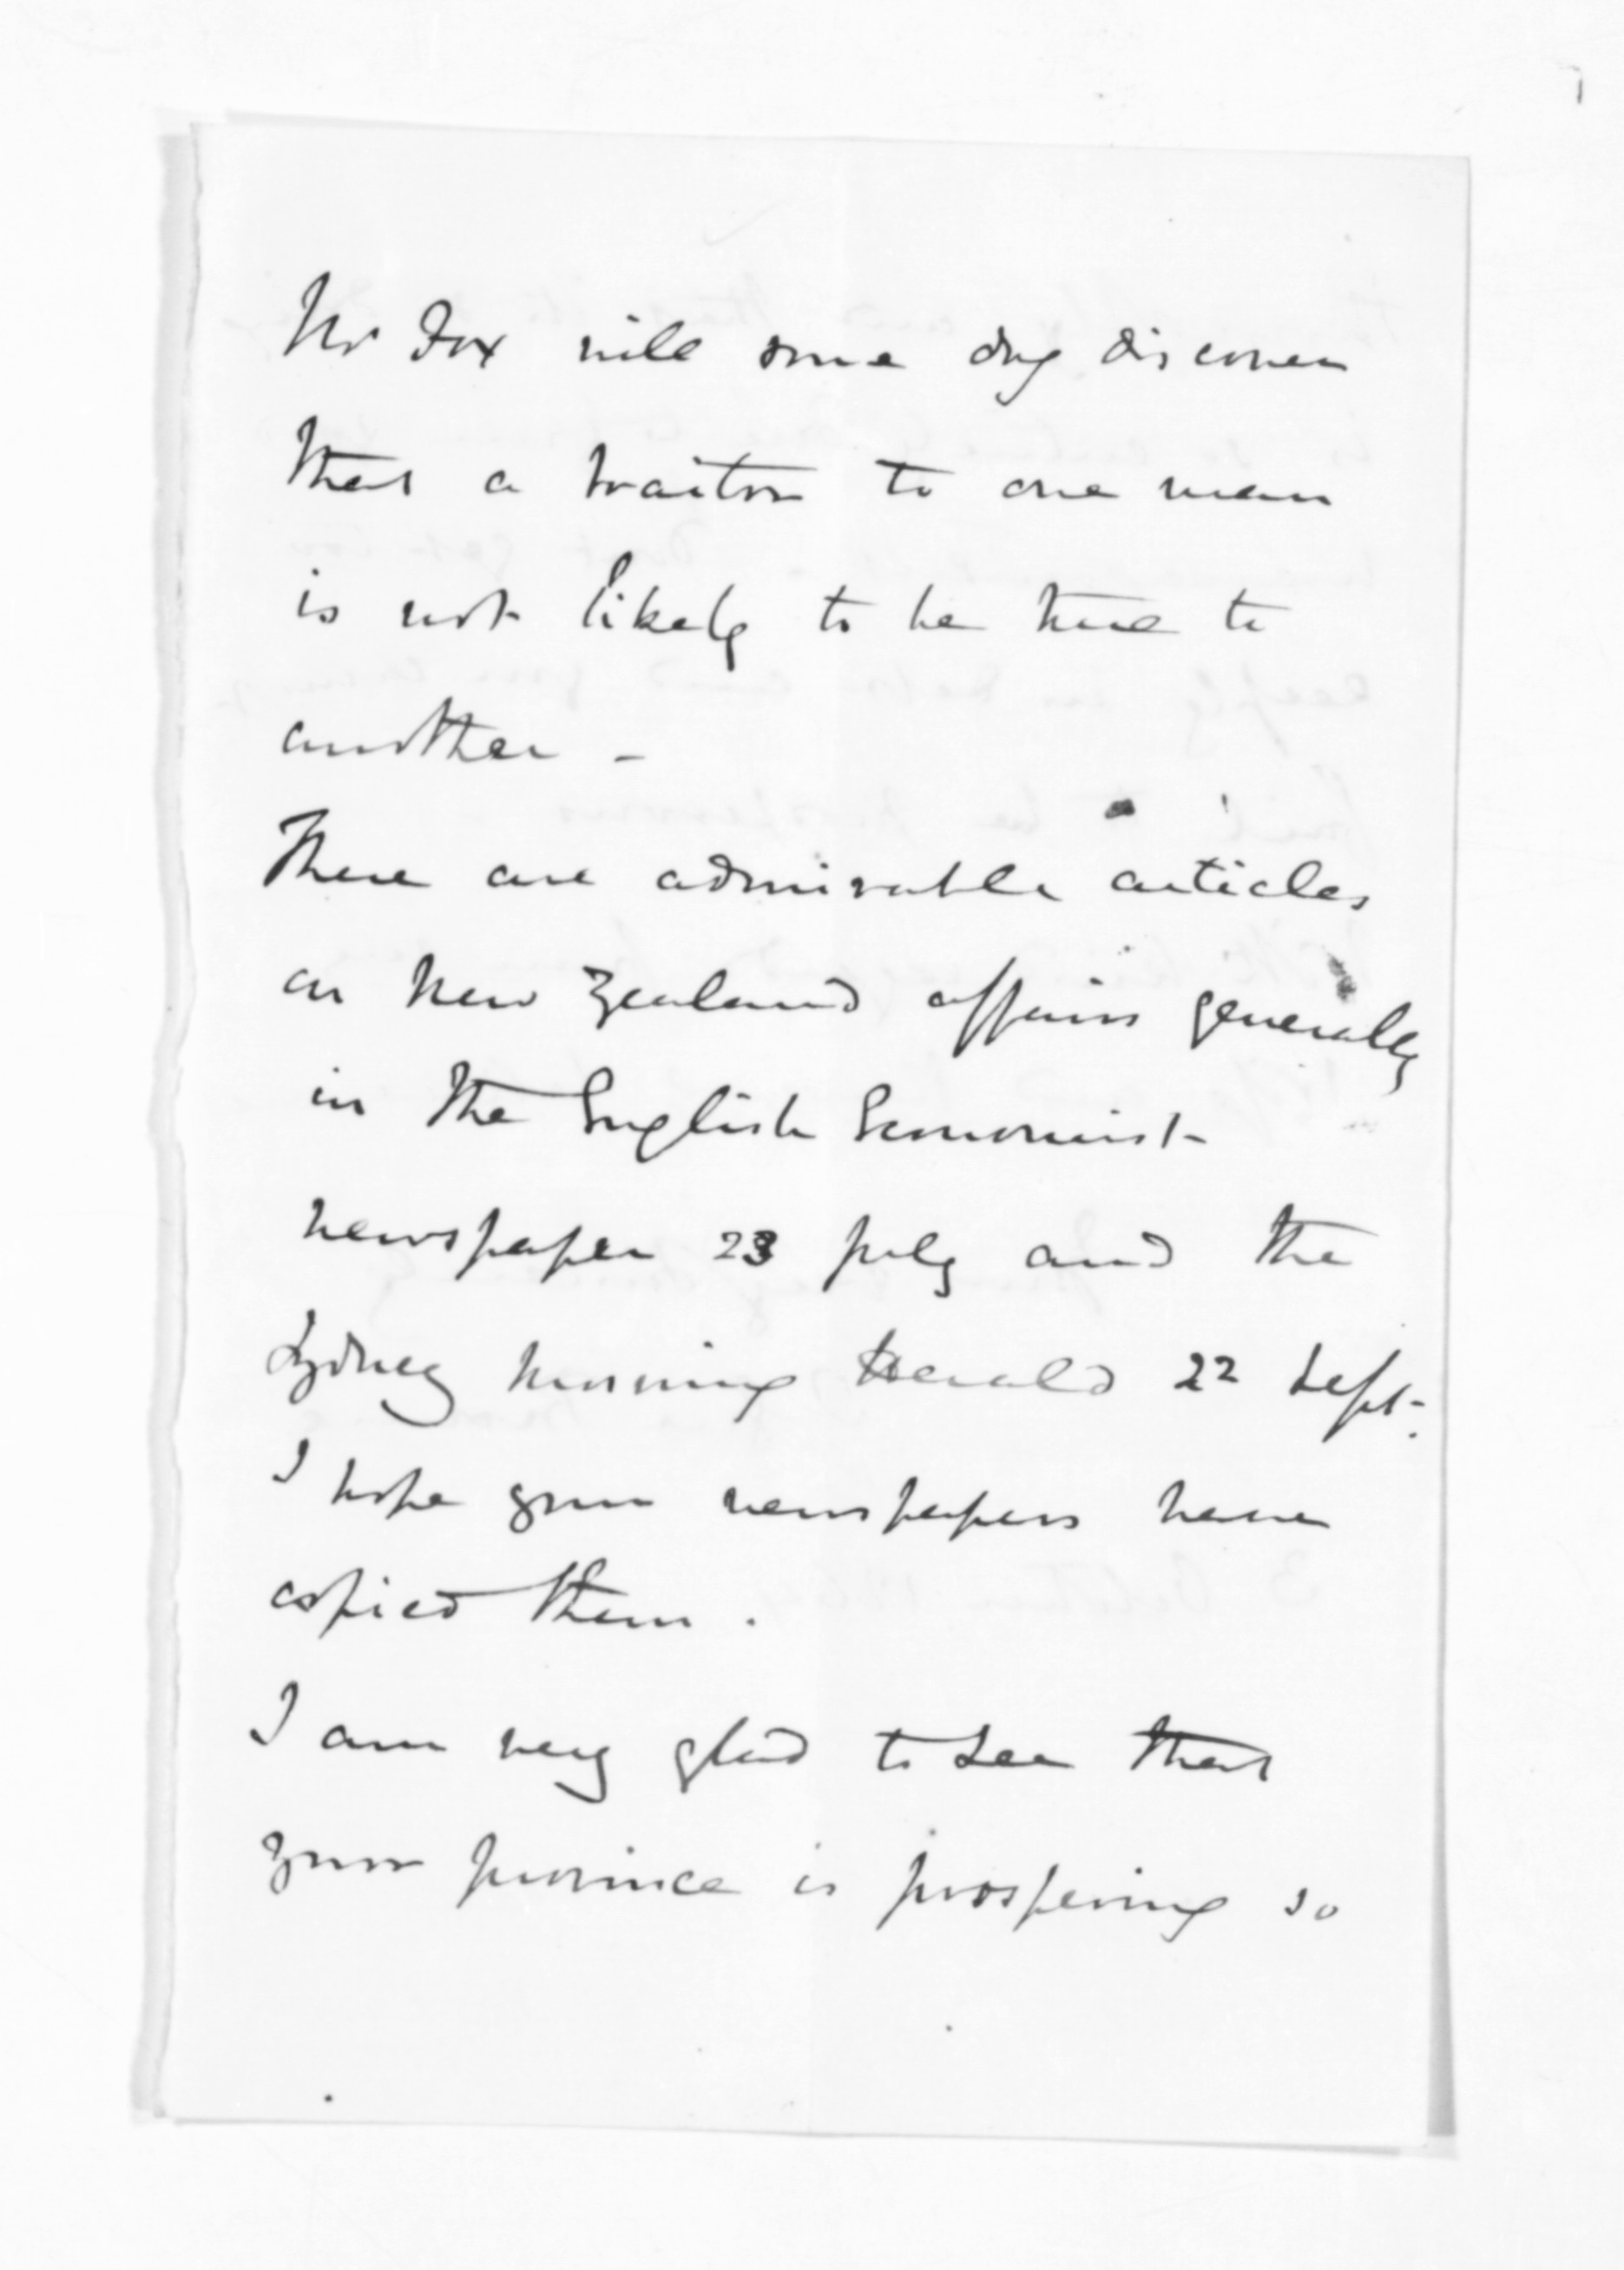 Mr Fox will some day discover
that a traitor to one man
is not likely to be true to
another -
There are admirable articles
on New Zealand affairs generally
in the English Economist
newspaper 23 July and the
Sydney Morning Herald 22 Sept.
I hope your newspapers have
copied them.
I am very glad to see that
your province is prospering so